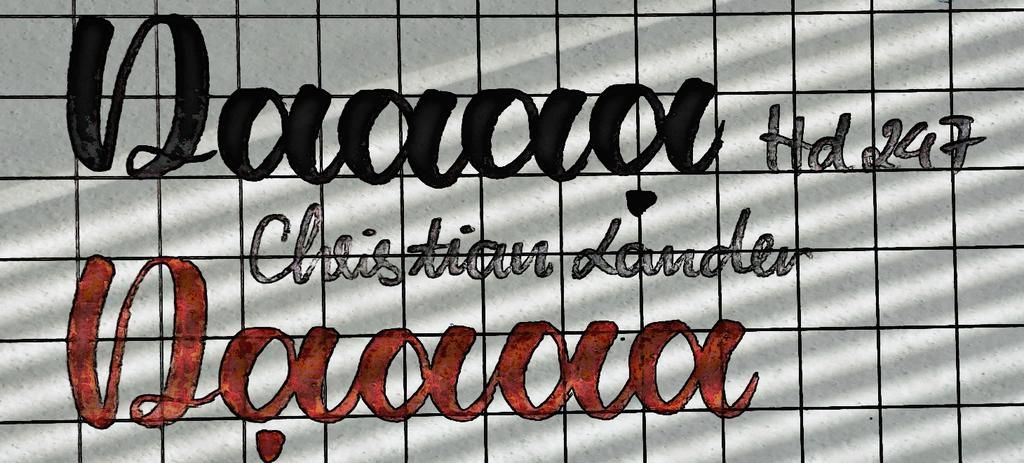 Daaaạ Hd 247
Christian Lander
Dạaaa